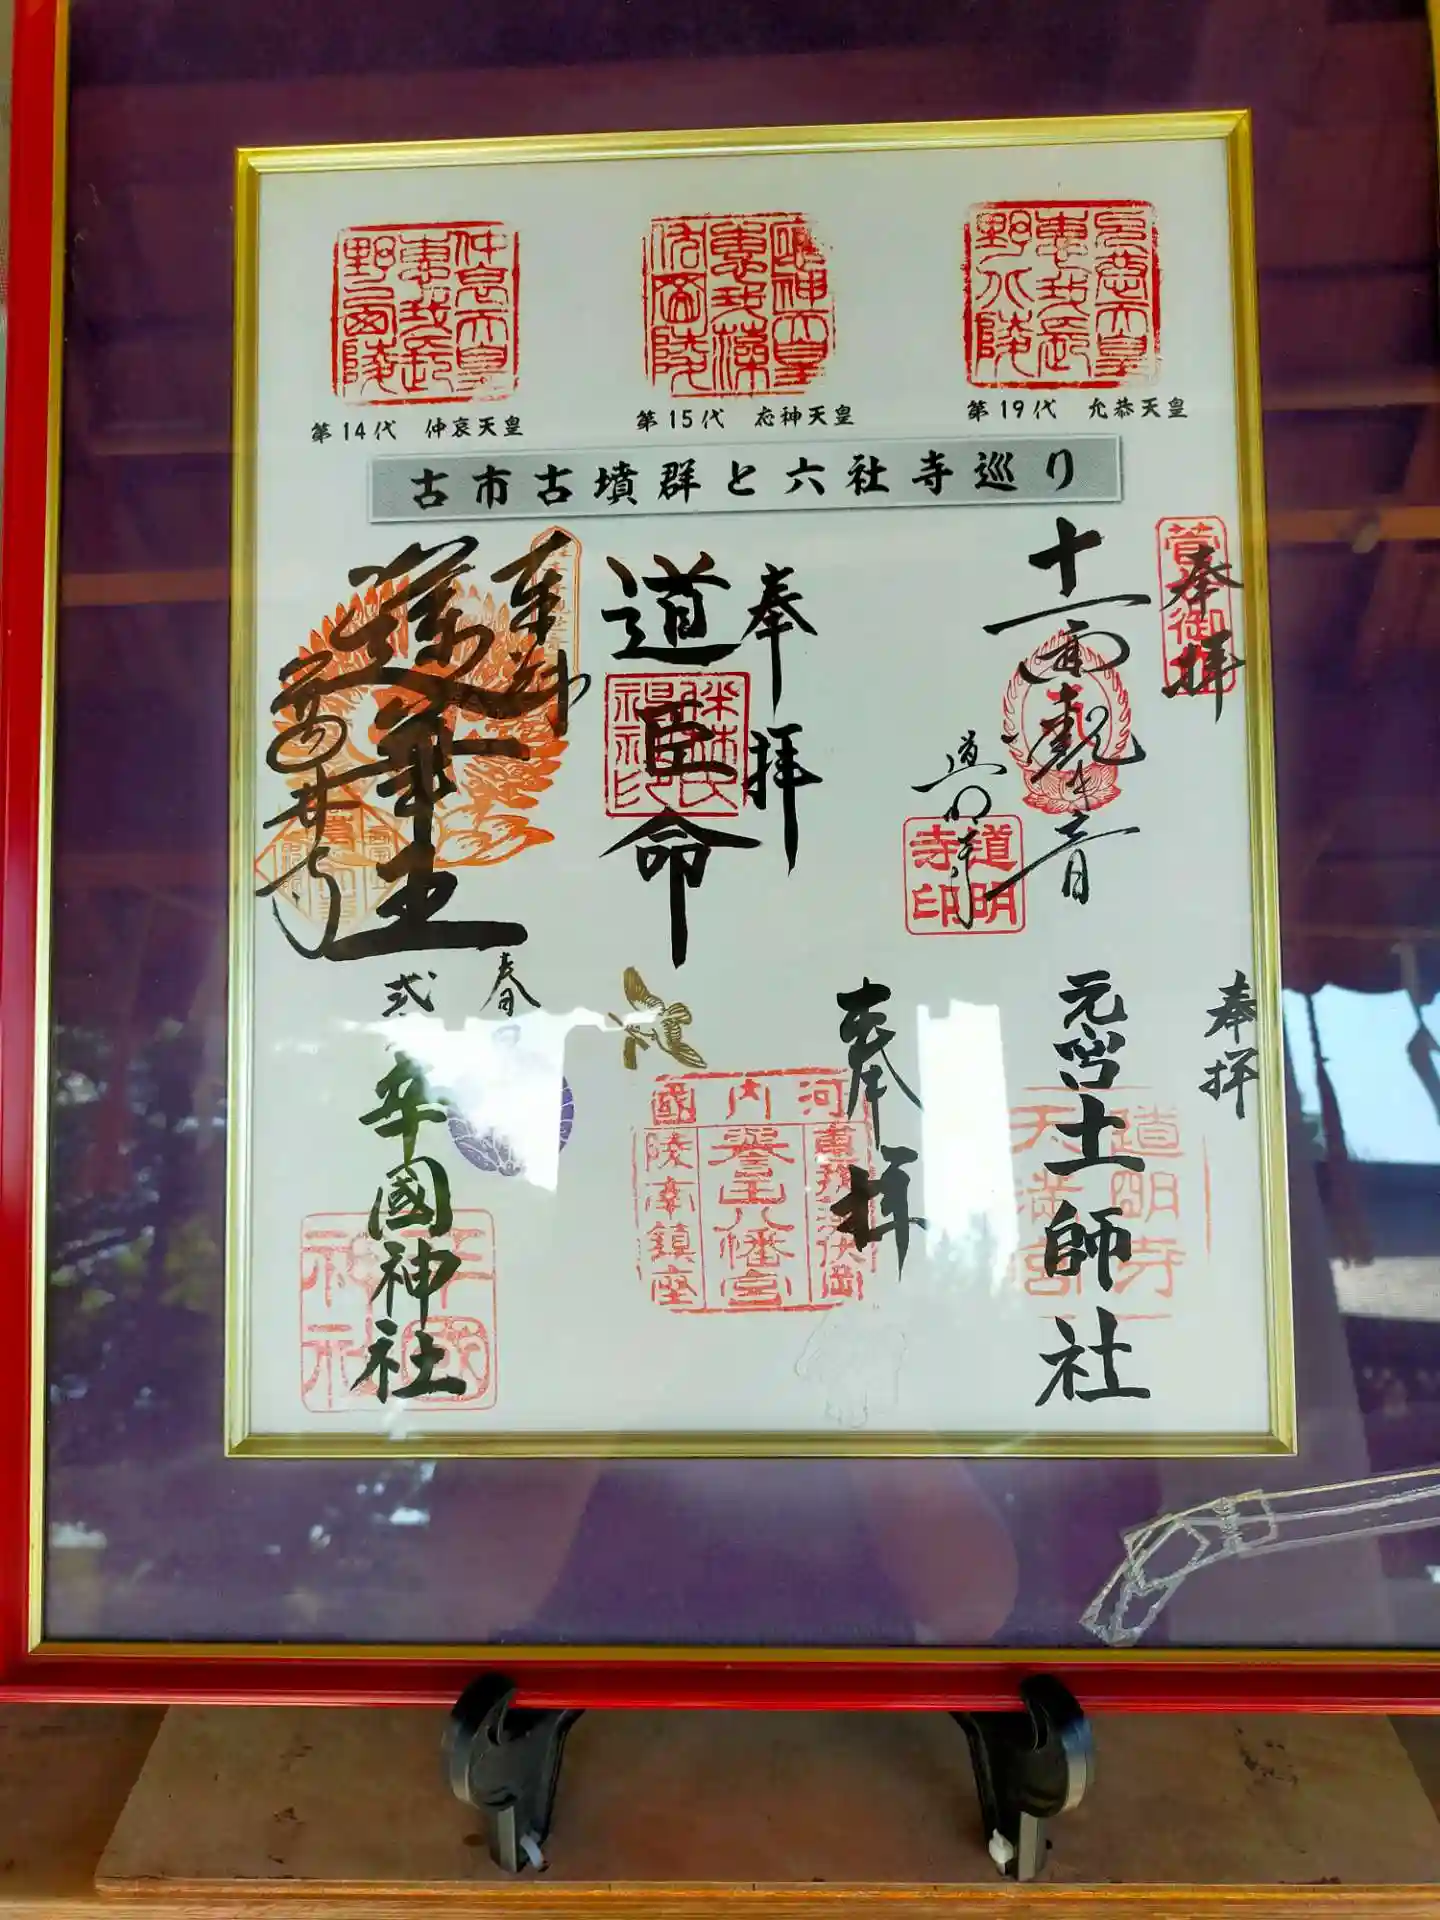 仲哀天皇
惠我長
野西陵
應神天皇
惠我藻
伏岡陵
允恭天皇
惠我長
野北陵
第14代 仲哀天皇
第15代 応神天皇
第19代 允恭天皇
古市古墳群と六社寺巡り
奉拝
十一面観世音
道明寺
道明
寺印
奉拝
道臣命
奉拝
葛井寺
奉拝
元宮土師社
道明寺
天満宮
奉拝
河内國
誉田八幡宮
陵南鎮座
春日
辛國神社
辛國
神社